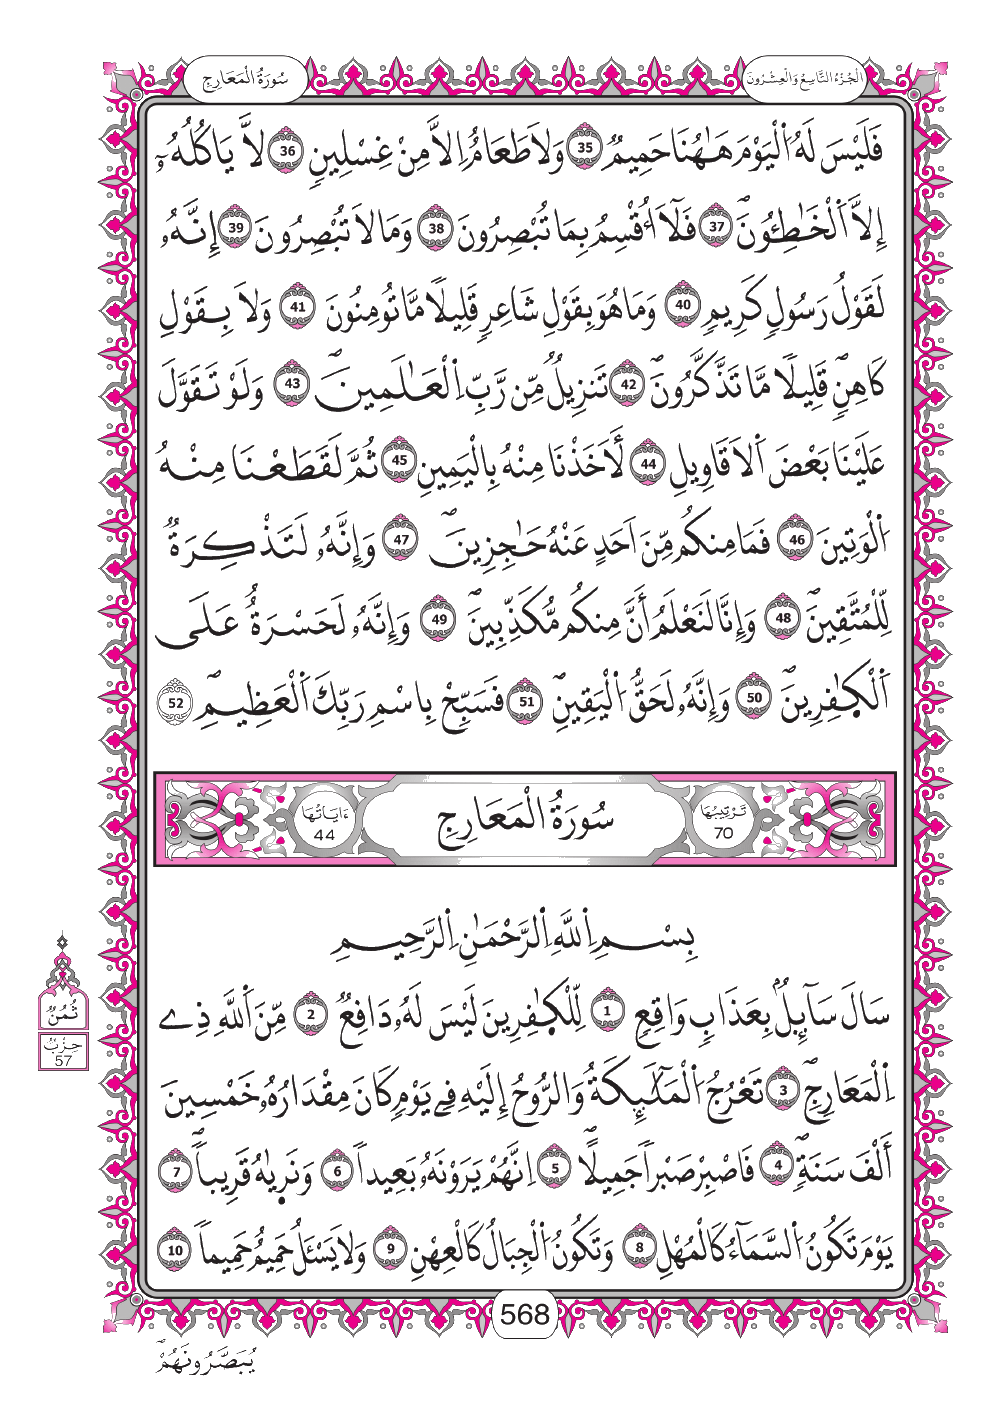 الجُزْءُ التَّاسِعُ وَالْعِشْرُونَ
سُورَةُ الْمَعَارِجِ
فَلَيْسَ لَهُ اُ۬لْيَوْمَ هَٰهُنَا حَمِيمٞ 35 وَلَا طَعَامٌ اِلَّا مِنْ غِسْلِينٖ 36 لَّا يَاكُلُهُۥٓ
إِلَّا اَ۬لْخَٰطِـُٔونَۖ 37 فَلَآ أُقْسِمُ بِمَا تُبْصِرُونَ 38 وَمَا لَا تُبْصِرُونَ 39 إِنَّهُۥ
لَقَوْلُ رَسُولٖ كَرِيمٖ 40 وَمَا هُوَ بِقَوْلِ شَاعِرٖ قَلِيلاٗ مَّا تُومِنُونَ 41 وَلَا بِقَوْلِ
كَاهِنٖۖ قَلِيلاٗ مَّا تَذَّكَّرُونَۖ 42 تَنزِيلٞ مِّن رَّبِّ اِ۬لْعَٰلَمِينَۖ 43 وَلَوْ تَقَوَّلَ
عَلَيْنَا بَعْضَ اَ۬لَاقَاوِيلِ 44 لَأَخَذْنَا مِنْهُ بِالْيَمِينِ 45 ثُمَّ لَقَطَعْنَا مِنْهُ
اُ۬لْوَتِينَ 46 فَمَا مِنكُم مِّنَ اَحَدٍ عَنْهُ حَٰجِزِينَۖ 47 وَإِنَّهُۥ لَتَذْكِرَةٞ
لِّلْمُتَّقِينَۖ 48 وَإِنَّا لَنَعْلَمُ أَنَّ مِنكُم مُّكَذِّبِينَۖ 49 وَإِنَّهُۥ لَحَسْرَةٌ عَلَى
اَ۬لْكٰ۪فِرِينَۖ 50 وَإِنَّهُۥ لَحَقُّ اُ۬لْيَقِينِۖ 51 فَسَبِّحْ بِاسْمِ رَبِّكَ اَ۬لْعَظِيمِۖ 52
تَرْتِيبُهَا 70
سُورَةُ الْمَعَارِجِ
ءَايَاتُهَا 44
بِسْمِ اِ۬للَّهِ اِ۬لرَّحْمَٰنِ اِ۬لرَّحِيمِ
سَالَ سَآئِلُۢ بِعَذَابٖ وَاقِعٖ 1 لِّلْكٰ۪فِرِينَ لَيْسَ لَهُۥ دَافِعٞ 2 مِّنَ اَ۬للَّهِ ذِے
اِ۬لْمَعَارِجِۖ 3 تَعْرُجُ اُ۬لْمَلَٰٓئِكَةُ وَالرُّوحُ إِلَيْهِ فِے يَوْمٖ كَانَ مِقْدَارُهُۥ خَمْسِينَ
أَلْفَ سَنَةٖۖ 4 فَاصْبِرْ صَبْراٗ جَمِيلاًۖ 5 اِنَّهُمْ يَرَوْنَهُۥ بَعِيداٗ 6 وَنَر۪يٰهُ قَرِيباٗۖ 7
يَوْمَ تَكُونُ اُ۬لسَّمَآءُ كَالْمُهْلِ 8 وَتَكُونُ اُ۬لْجِبَالُ كَالْعِهْنِ 9 وَلَا يَسْـَٔلُ حَمِيمٌ حَمِيماٗ 10
ثُمُنٌ
حِزْبٌ
57
568
يُبَصَّرُونَهُمْۖ